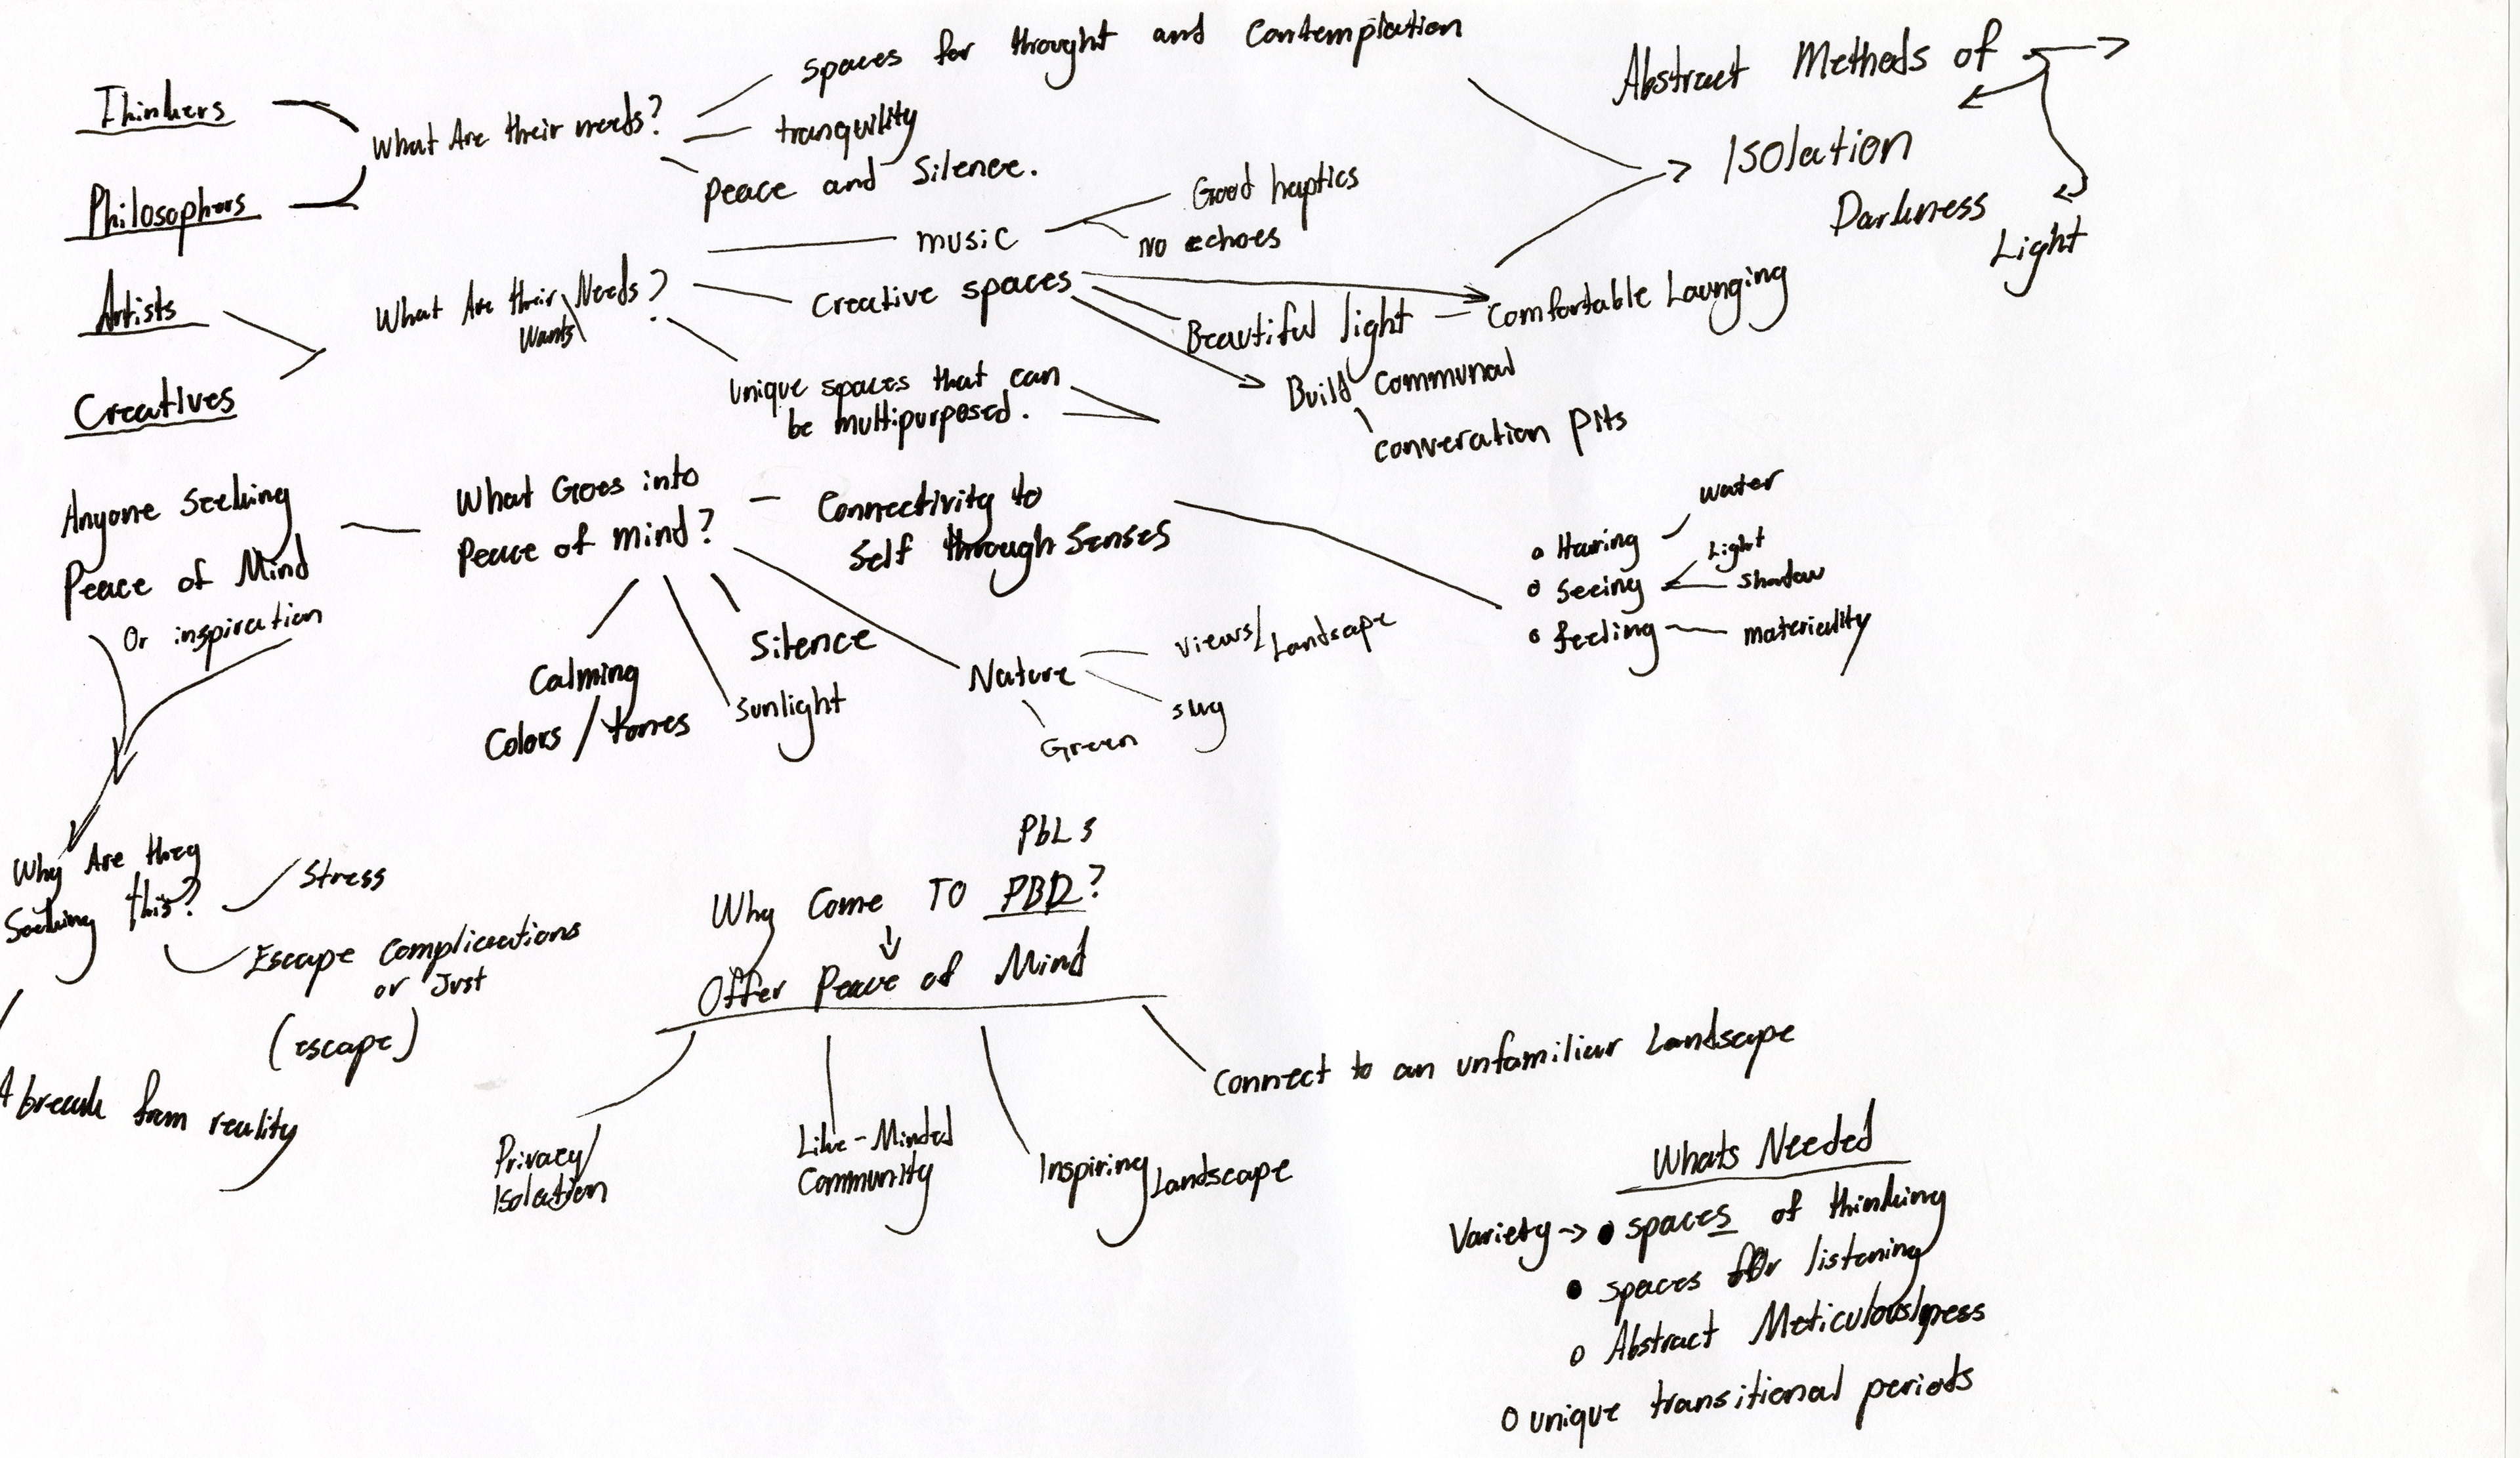 Thinkers
Philosophers
What Are their needs?
spaces for thought and Contemplation
tranquility
Peace and Silence.
Abstract Methods of
Isolation
Darkness
Light
Artists
Creatives
What Are their Needs?
Wants
music
Good haptics
No echoes
Creative spaces
Beautiful light
Comfortable Lounging
Build Communal
converation Pits
Unique spaces that can
be multipurposed.
Anyone Seeking
Peace of Mind
Or inspiration
What Goes into
Peace of mind?
Connectivity to
Self through Senses
Hearing
water
Seeing
Light
Shadow
feeling
materiality
Calming
Colors / tones
Silence
Sunlight
Nature
views/Landscape
sky
Green
Why Are they
Seeking this?
Stress
Escape Complications
or Just
(escape)
A break from reality
Why Come TO
Offer Peace of Mind
Privacy/
Isolation
Like-Minded
Community
Inspiring Landscape
Connect to an unfamiliar Landscape
Whats Needed
Variety → • spaces of thinking
• spaces for listening
Abstract Meticulousness
unique transitional periods